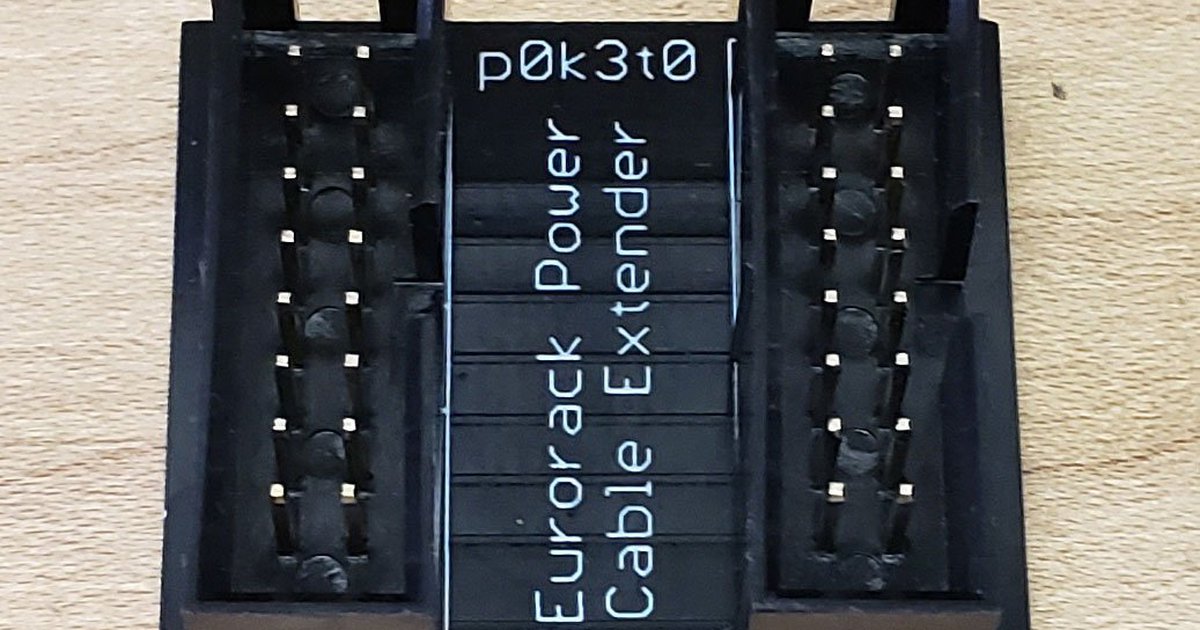 p0k3t0
Eurorack Power
Cable Extender